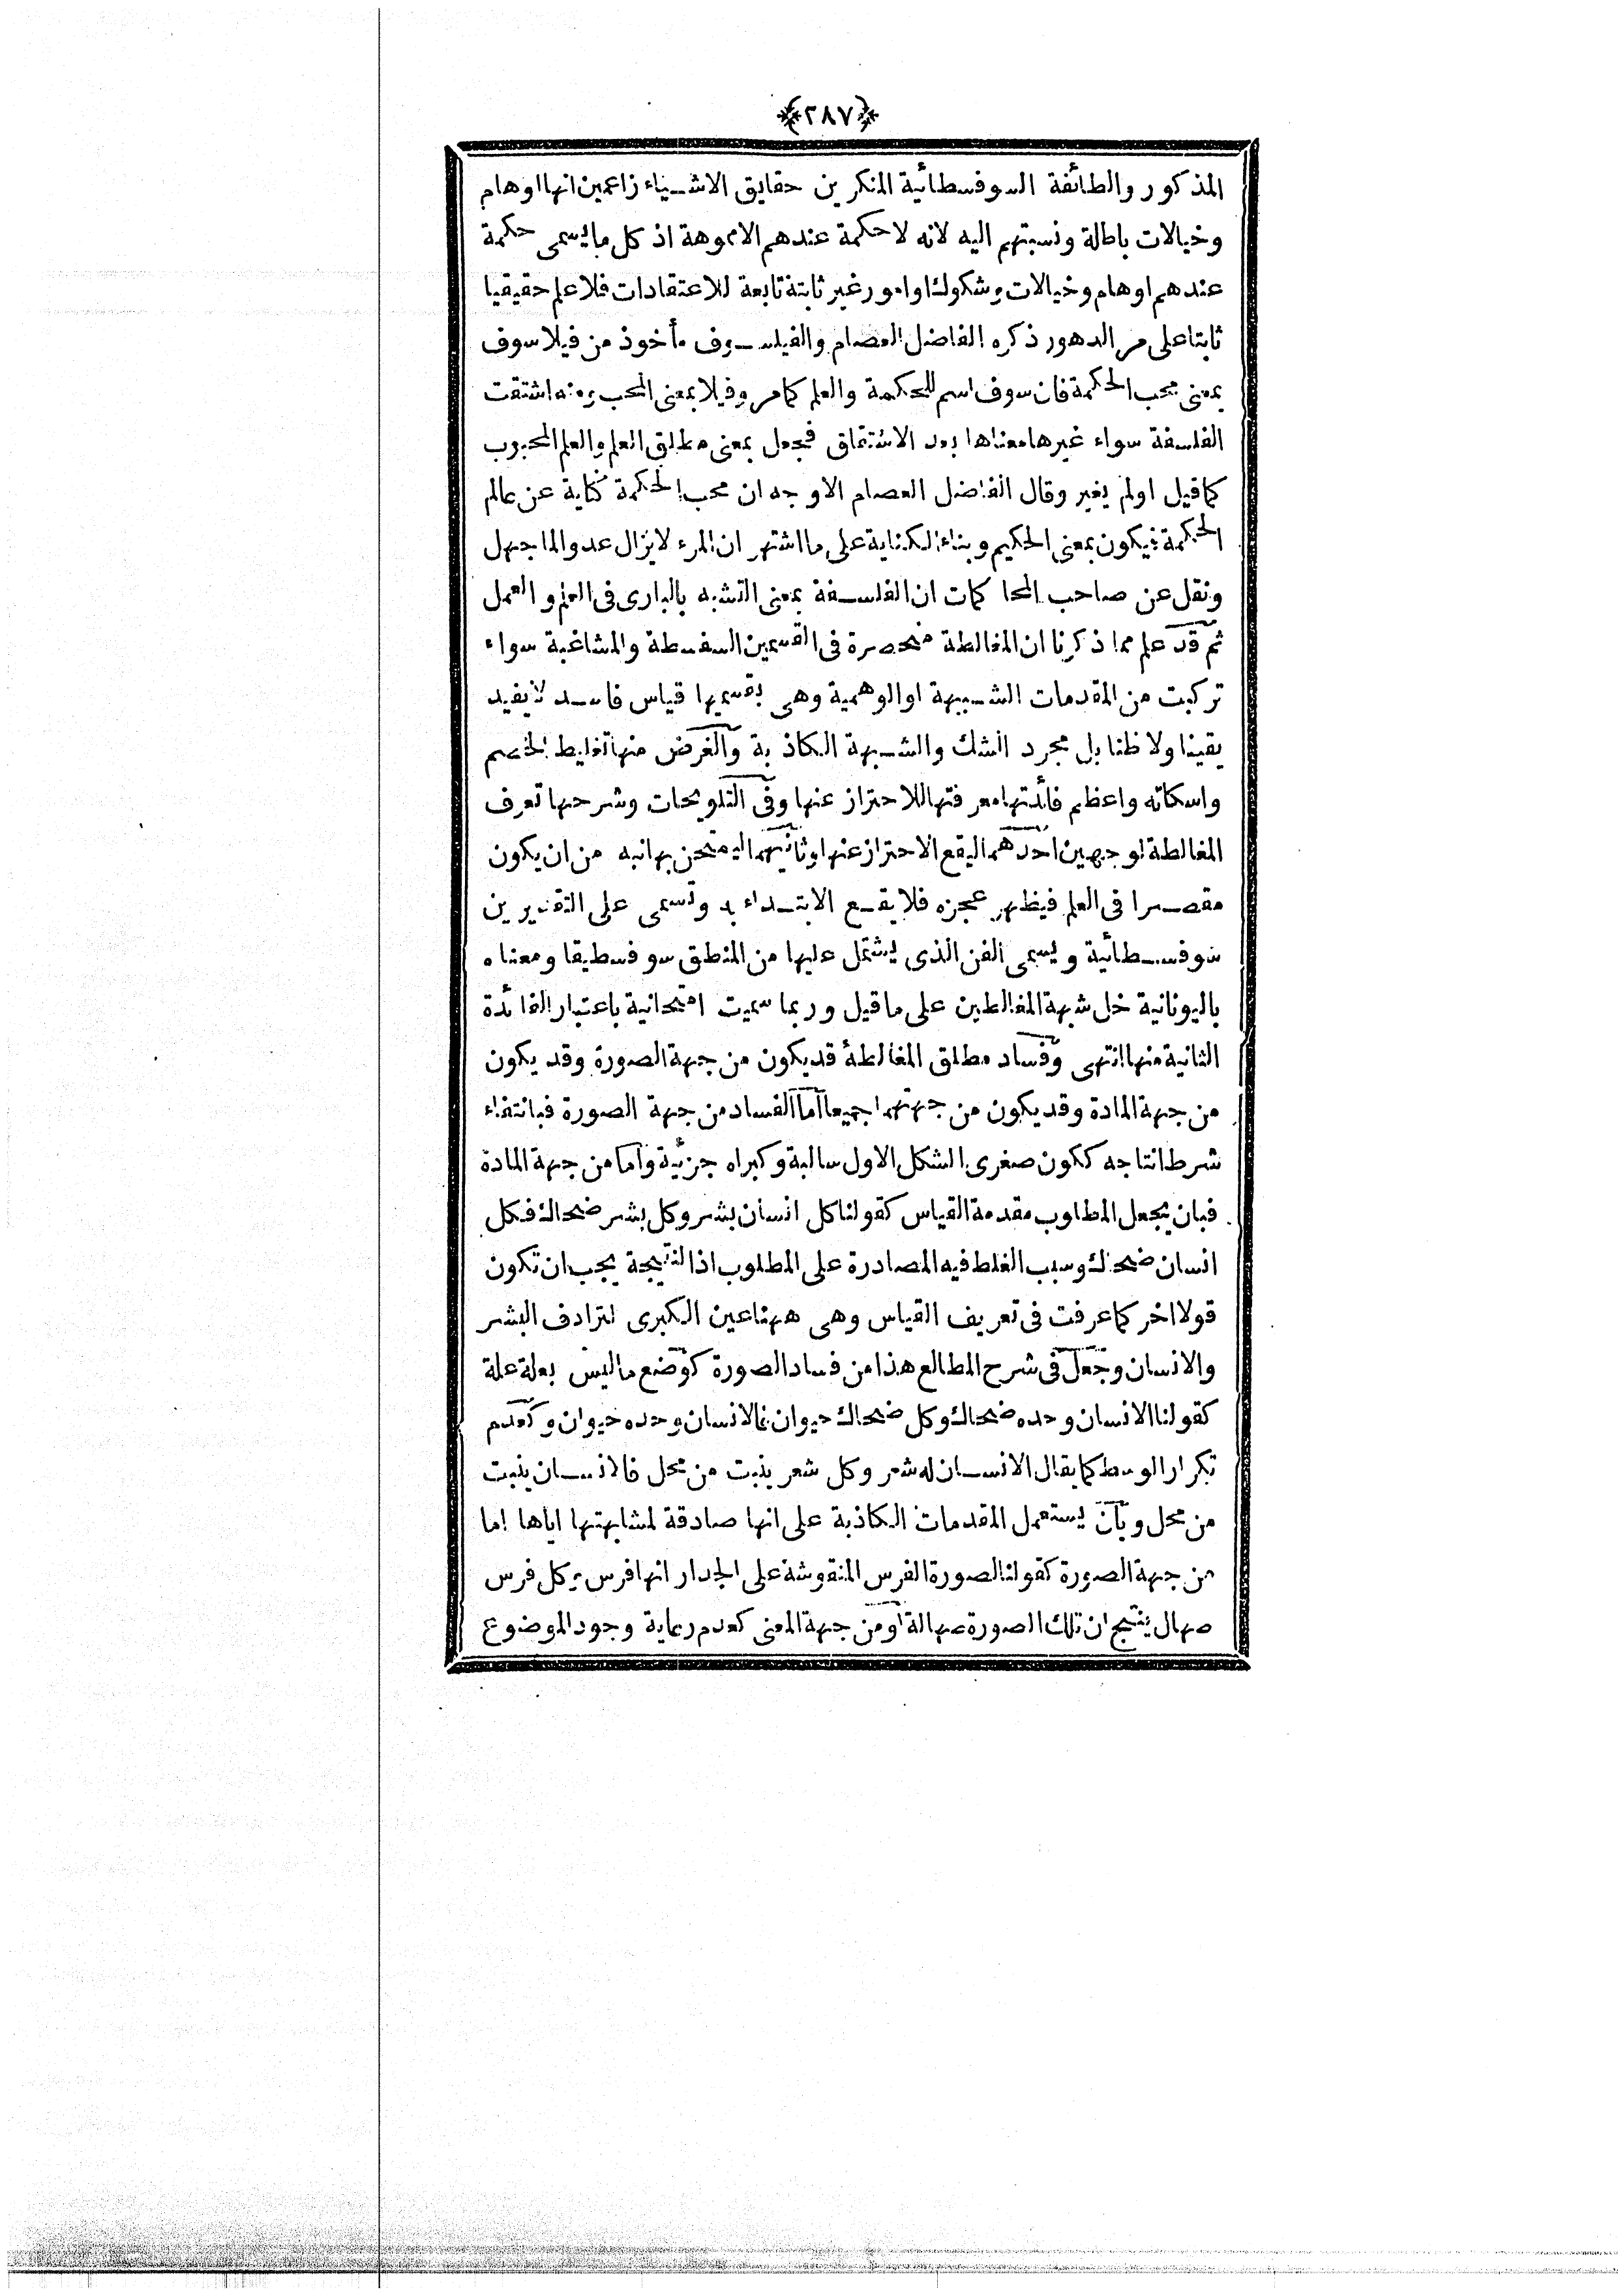 ﴿٢٨٧﴾
المذكور والطائفة السوفسطائية المنكرين حقايق الاشياء زاعمين انها اوهام
وخيالات باطالة ونسبتهم اليه لانه لا حكمة عندهم الا مموهة اذ كل ما يسمى حكمة
عندهم اوهام وخيالات وشكوك او امور غير ثابتة تابعة للاعتقادات فلا علم حقيقيا
ثابتا على مر الدهور ذكره الفاضل العصام والفيلسوف مأخوذ من فيلا سوف
بمعنى محب الحكمة فان سوف اسم للحكمة والعلم كما مر وفيلا بمعنى المحب ومنه اشتقت
الفلسفة سواء غيرها معناها بعد الاشتقاق فجعل بمعنى مطلق العلم والعلم المحبوب
كما قيل او لم يغير وقال الفاضل العصام الاوجه ان محب الحكمة كناية عن عالم
الحكمة فيكون بمعنى الحكيم وبناء الكناية على ما اشتهر ان المرء لا يزال عدوا لما جهل
ونقل عن صاحب المحاكمات ان الفلسفة بمعنى التشبه بالبارى فى العلم والعمل
ثم قد علم مما ذكرنا ان المغالطة منحصرة فى القسمين السفسطة والمشاغبة سواء
تركبت من المقدمات الشبيهة او الوهمية وهى بقسميها قياس فاسد لا يفيد
يقينا ولا ظنا بل مجرد الشك والشبهة الكاذبة والغرض منها تغليط الخصم
واسكاته واعظم فائدتها معرفتها للاحتراز عنها وفى التلويحات وشرحها تعرف
المغالطة لوجهين احدهما ليقع الاحتراز عنها وثانيهما ليمتحن بها نبه من ان يكون
مقصرا فى العلم فيظهر عجزه فلا يقع الابتداء به وتسمى على التقديرين
سوفسطائية ويسمى الفن الذى يشتمل عليها من المنطق سوفسطيقا ومعناه
باليونانية خل شبهة المغالطين على ما قيل وربما سميت امتحانية باعتبار الفائدة
الثانية منها انتهى وفساد مطلق المغالطة قد يكون من جهة الصورة وقد يكون
من جهة المادة وقد يكون من جهتهما جميعا اما الفساد من جهة الصورة فبانتفاء
شرط انتاجه ككون صغرى الشكل الاول سالبة وكبراه جزئية واما من جهة المادة
فبان يجعل المطلوب مقدمة القياس كقولنا كل انسان بشر وكل بشر ضحاك فكل
انسان ضحاك وسبب الغلط فيه المصادرة على المطلوب اذ النتيجة يجب ان تكون
قولا اخر كما عرفت فى تعريف القياس وهى ههنا عين الكبرى لترادف البشر
والانسان وجعل فى شرح المطالع هذا من فساد الصورة كوضع ما ليس بعلة علة
كقولنا الانسان وحده ضحاك وكل ضحاك حيوان فالانسان وحده حيوان وكعدم
تكرار الوسط كما يقال الانسان له شعر وكل شعر ينبت من محل فالانسان ينبت
من محل وبان يستعمل المقدمات الكاذبة على انها صادقة لمشابهتها اياها اما
من جهة الصورة كقولنا لصورة الفرس المنقوشة على الجدار انها فرس وكل فرس
صهال ينتج ان تلك الصورة صهالة او من جهة المعنى كعدم رعاية وجود الموضوع